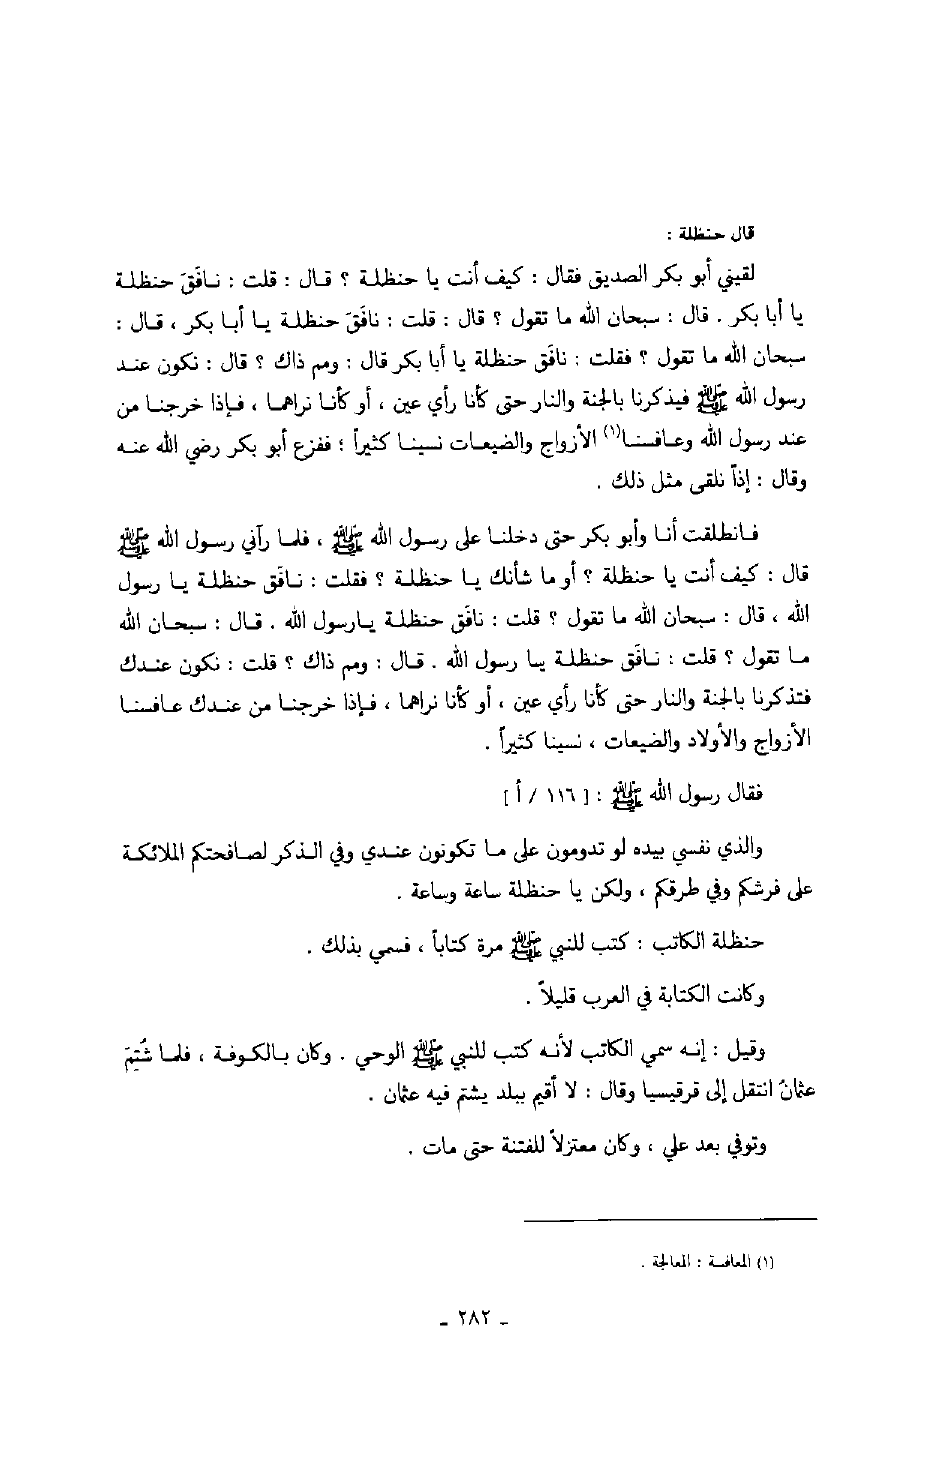 قال حنظلة :
لقيني أبو بكر الصديق فقال : كيف أنت يا حنظلة ؟ قال : قلت : نافَقَ حنظلة
يا أبا بكر . قال : سبحان الله ما تقول ؟ قال : قلت : نافَقَ حنظلة يا أبا بكر ، قال :
سبحان الله ما تقول ؟ فقلت : نافَق حنظلة يا أبا بكر قال : ومم ذاك ؟ قال : نكون عند
رسول الله ﷺ فيذكرنا بالجنة والنار حتى كأنا رأي عين ، أو كأنا نراهما ، فإذا خرجنا من
عند رسول الله وعافسنا(١) الأزواج والضيعات نسينا كثيراً ؛ ففزع أبو بكر رضي الله عنه
وقال : إذاً نلقى مثل ذلك .
فانطلقت أنا وأبو بكر حتى دخلنا على رسول الله ﷺ ، فلما رآني رسول الله ﷺ
قال : كيف أنت يا حنظلة ؟ أو ما شأنك يا حنظلة ؟ فقلت : نافَق حنظلة يا رسول
الله ، قال : سبحان الله ما تقول ؟ قلت : نافَق حنظلة يارسول الله . قال : سبحان الله
ما تقول ؟ قلت : نافَق حنظلة يا رسول الله . قال : ومم ذاك ؟ قلت : نكون عندك
فتذكرنا بالجنة والنار حتى كأنا رأي عين ، أو كأنا نراهما ، فإذا خرجنا من عندك عافسنا
الأزواج والأولاد والضيعات ، نسينا كثيراً .
فقال رسول الله ﷺ : [ ١١٦ / أ ]
والذي نفسي بيده لو تدومون على ما تكونون عندي وفي الذكر لصافحتكم الملائكة
على فرشكم وفي طرقكم ، ولكن يا حنظلة ساعة وساعة .
حنظلة الكاتب : كتب للنبي ﷺ مرة كتاباً ، فسمي بذلك .
وكانت الكتابة في العرب قليلاً .
وقيل : إنه سمي الكاتب لأنه كتب للنبي ﷺ الوحي . وكان بالكوفة ، فلما شُتِمَ
عثمانُ انتقل إلى قرقيسيا وقال : لا أقيم ببلد يشتم فيه عثمان .
وتوفي بعد علي ، وكان معتزلاً للفتنة حتى مات .
(١) المعافسة : المعالجة .
ـ ٢٨٢ ـ